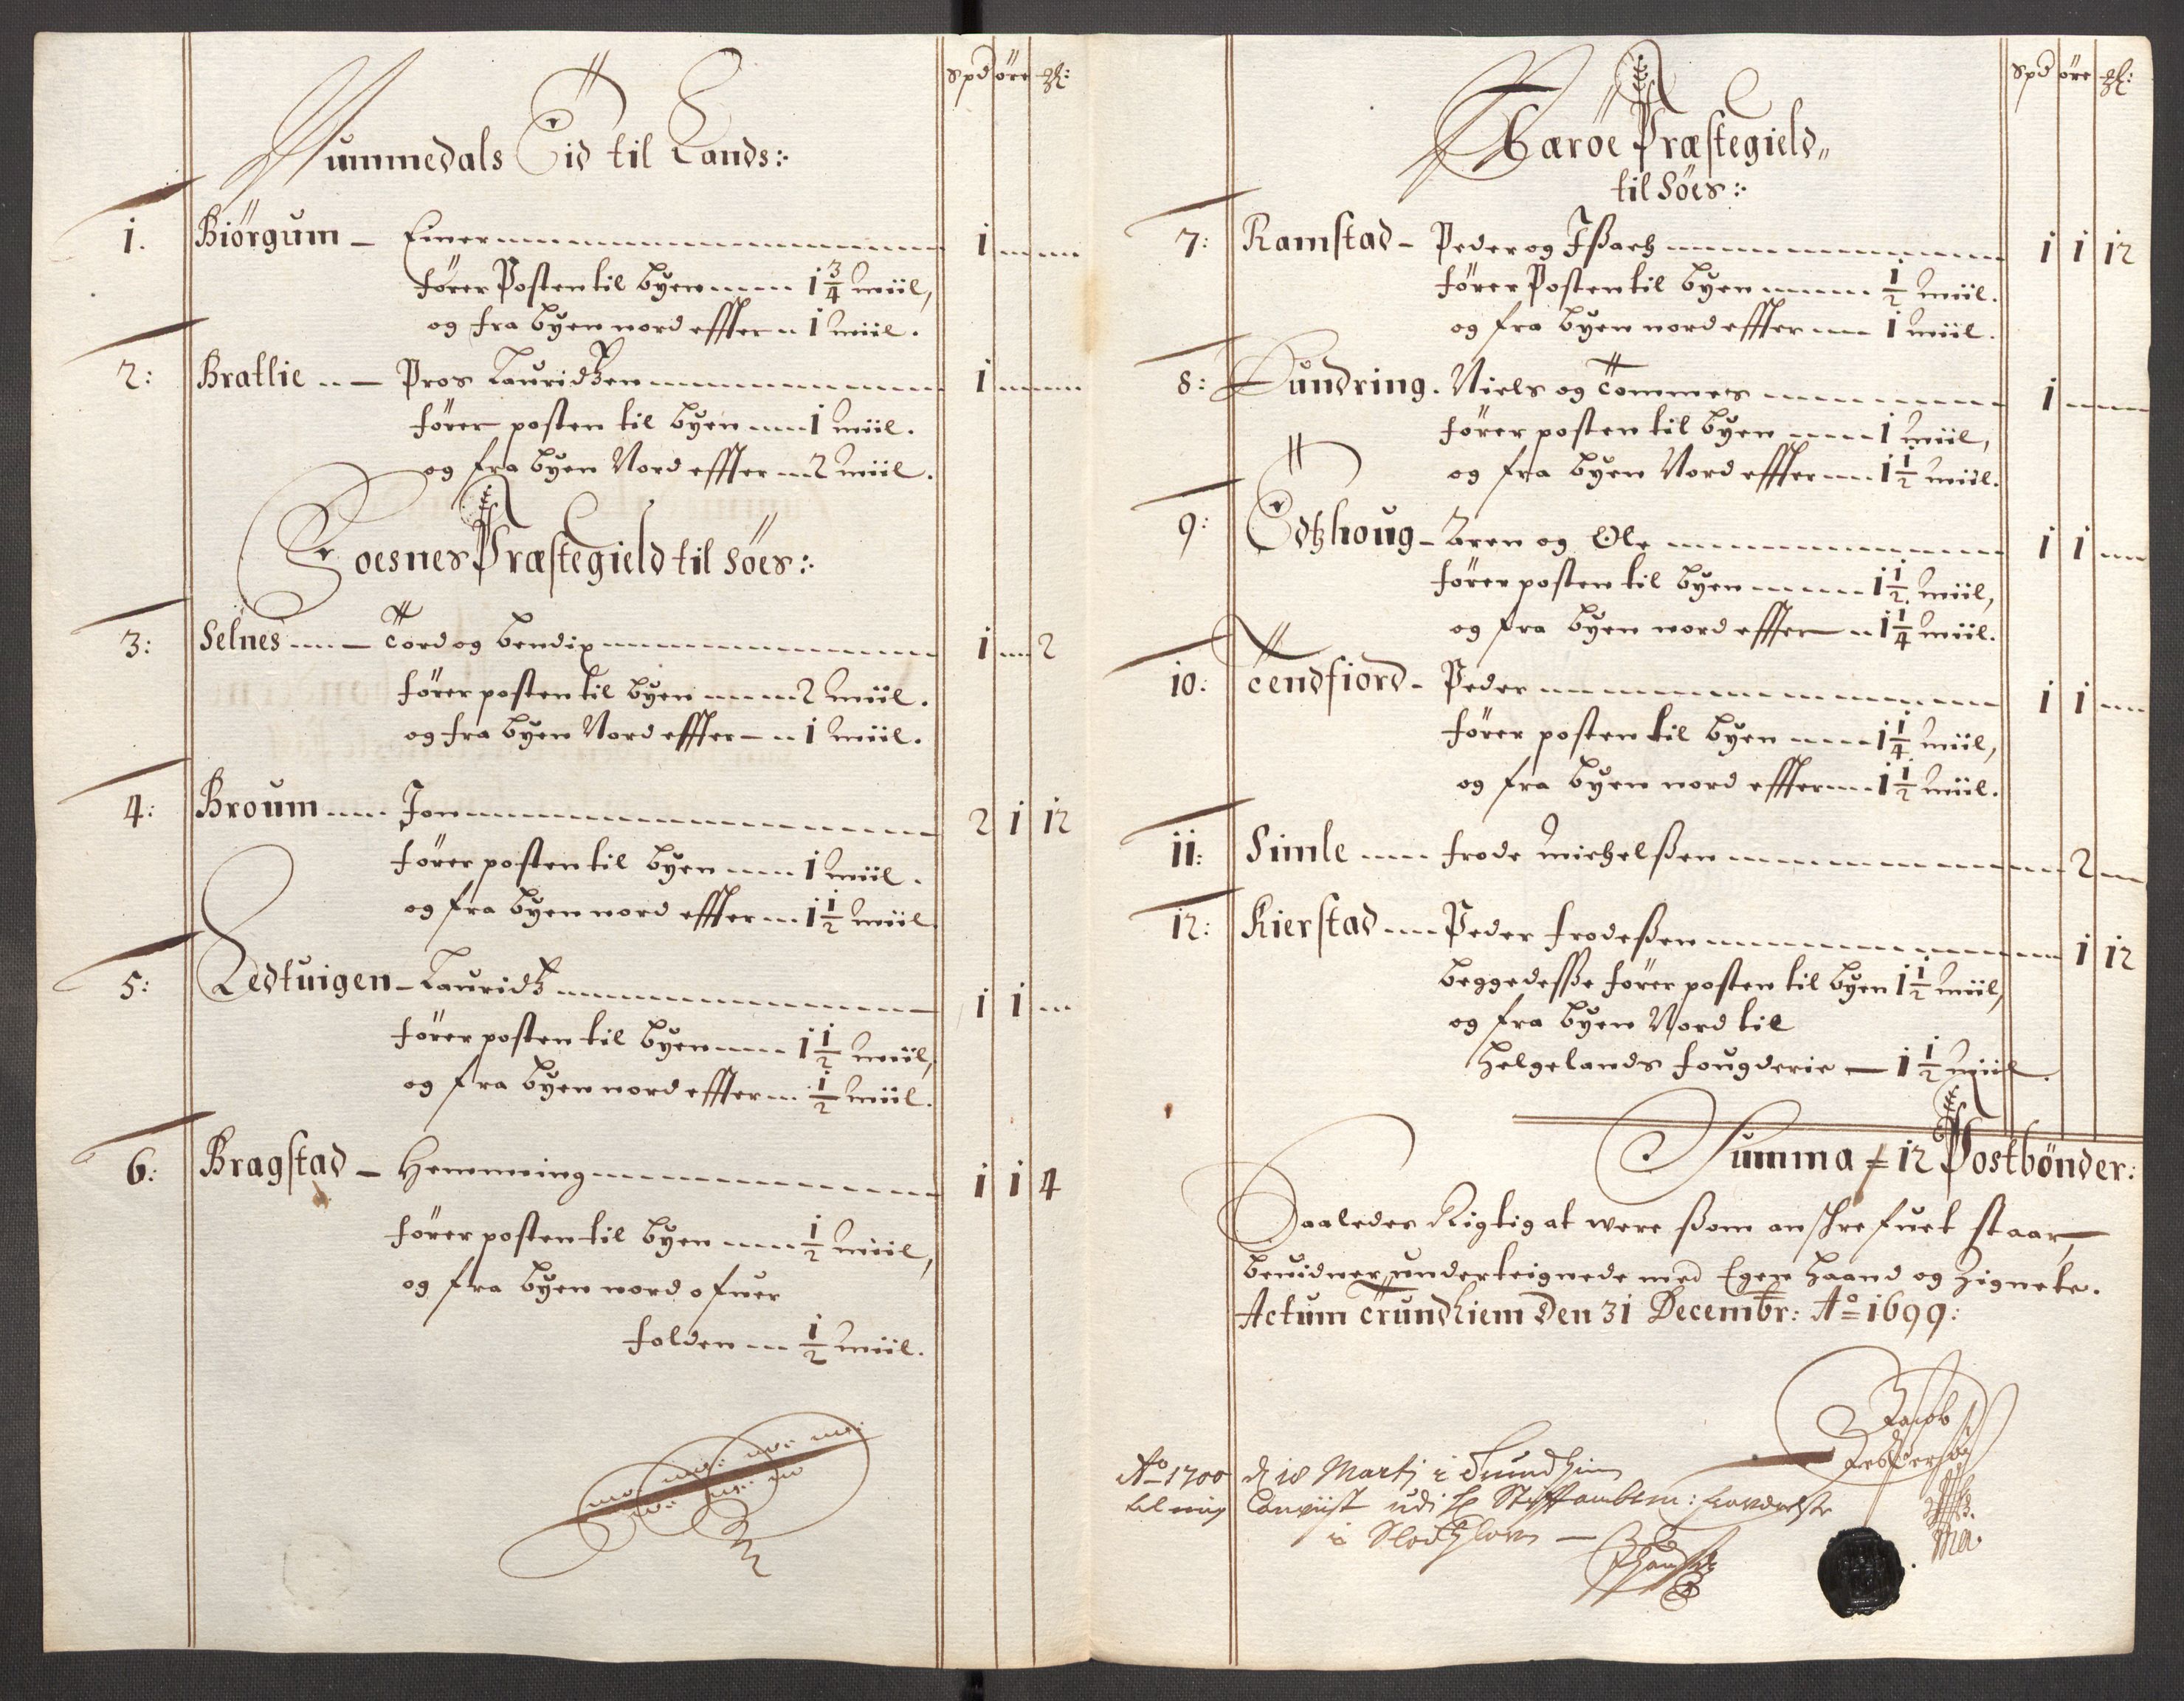 spd öre
Nummedals Eid til Lands:
1. Biörgum - Einer 1
fører Posten til byen 1 3/4 miil,
og fra byen nord effter 1 miil.
2: Bratlie - Pros Lauridtzen 1
fører posten til byen 1 miil.
og fra byen Nord effter 2 miil.
Foesnes Præstegield til Söes:
3: Selnes - Tord og Bendix 1 2
fører posten til byen 2 miil.
og fra byen Nord effter 1 miil.
4: Broum Jon 2 1 12
fører posten til byen 1 miil.
og fra byen nord effter 1 1/2 miil
5: Ledtuigen - Lauridtz 1 1
fører posten til byen 1 1/2 miil,
og fra byen nord effter 1/2 miil.
6: Bragstad - Hemming 1 1 4
fører posten til byen 1/2 miil,
og fra byen nord ofuer
folden 1/2 miil.
spd öre
Næröe Præstegield
til Söes:
7: Ramstad - Peder og Ißach 1 1 12
fører Posten til byen 1/2 miil.
og fra byen nord effter 1 miil.
8: Dundring. Niels og Tommes 1
fører posten til byen 1 miil,
og fra byen Nord effter 1 1/2 miil.
9: Edtzhoug - Bren og Ole 1 1
fører posten til byen 1 1/2 miil,
og fra byen nord effter 1 1/4 miil.
10: Tendfiord - Peder 1 1
fører posten til byen 1 1/4 miil,
og fra byen nord effter 1 1/2 miil.
11: Simle frode michelßen 2
12: Kierstad Peder frodeßen 1 12
beggedesße fører posten til byen 1 1/2 miil,
og fra byen Nord til
Helgelands fougderie - 1 1/2 miil.
Summa = 12 Postbönder:
Saaledes Rigtig at were ßom anschrefuet staar,
beuidner underteignede med Egen haand og Zignete.
Actum Trundhiem den 31 Decembr: Ao 1699:
Jacob
Ao 1700 d 18 Martj i Trundhiem